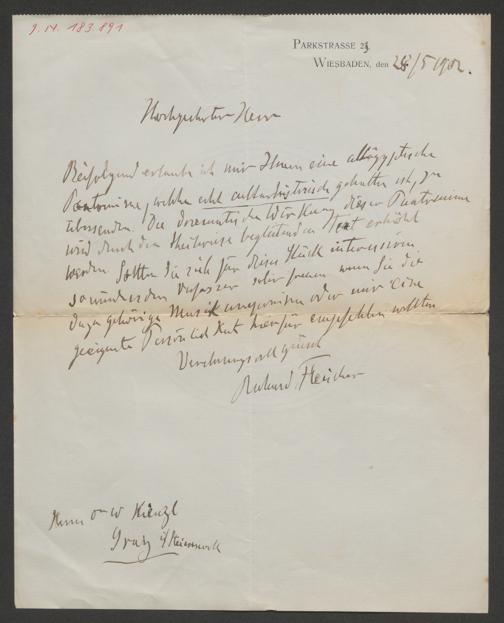 J. N. 183.891
PARKSTRASSE 23.
WIESBADEN, den 28/5 1902.
Hochgeehrter Herr
Beifolgend erlaube ich mir Ihnen eine altägyptische
Pantomime, welche echt culturhistorisch gehalten ist, zu
übersenden. Die dramatische Wirkung dieser Pantomime
wird durch den theilweise begleitenden Text erhöht
werden. Sollten Sie sich für dieses Stück interessiren
so würde es den Verfasser sehr freuen wenn Sie die
dazu gehörige Musik componiren oder mir eine
geeignete Persönlichkeit hierfür empfehlen wollten
Verehrungsvoll grüsst
Richard Fleischer
Herrn Dr W Kienzl
Graz i/Steiermark